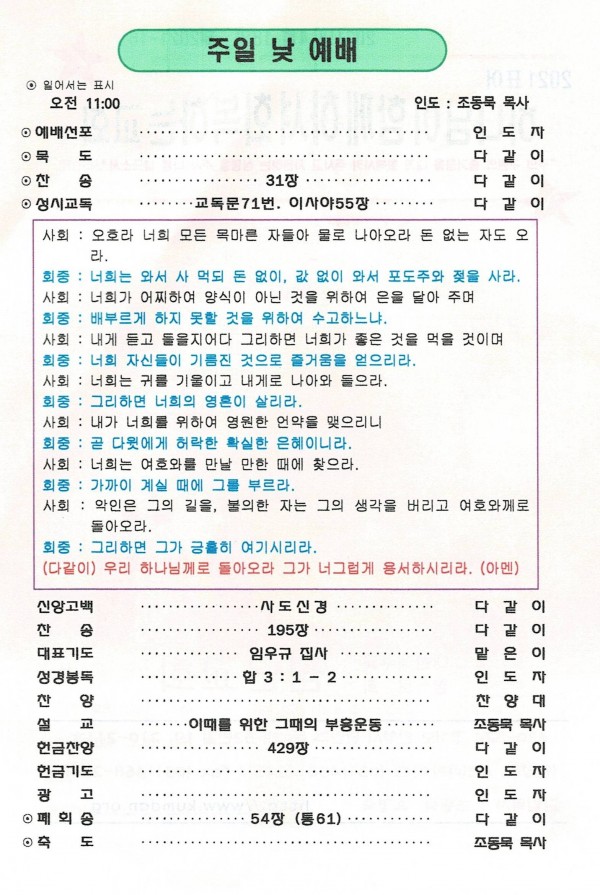 주일 낮 예배
⊙ 일어서는 표시
오전 11:00 인도 : 조동묵 목사
⊙예배선포 ································ 인 도 자
⊙묵 도 ································ 다 같 이
⊙찬 송 ················ 31장 ················ 다 같 이
⊙성시교독 ········교독문71번. 이사야55장········· 다 같 이
사회 : 오호라 너희 모든 목마른 자들아 물로 나아오라 돈 없는 자도 오
라.
회중 : 너희는 와서 사 먹되 돈 없이, 값 없이 와서 포도주와 젖을 사라.
사회 : 너희가 어찌하여 양식이 아닌 것을 위하여 은을 달아 주며
회중 : 배부르게 하지 못할 것을 위하여 수고하느냐.
사회 : 내게 듣고 들을지어다 그리하면 너희가 좋은 것을 먹을 것이며
회중 : 너희 자신들이 기름진 것으로 즐거움을 얻으리라.
사회 : 너희는 귀를 기울이고 내게로 나아와 들으라.
회중 : 그리하면 너희의 영혼이 살리라.
사회 : 내가 너희를 위하여 영원한 언약을 맺으리니
회중 : 곧 다윗에게 허락한 확실한 은혜이니라.
사회 : 너희는 여호와를 만날 만한 때에 찾으라.
회중 : 가까이 계실 때에 그를 부르라.
사회 : 악인은 그의 길을, 불의한 자는 그의 생각을 버리고 여호와께로
돌아오라.
회중 : 그리하면 그가 긍휼히 여기시리라.
(다같이) 우리 하나님께로 돌아오라 그가 너그럽게 용서하시리라. (아멘)
신앙고백 ················사도신경·············· 다 같 이
찬 송 ················195장················ 다 같 이
대표기도 ·············· 임우규 집사 ············· 맡 은 이
성경봉독 ·············합 3 : 1 - 2············· 인 도 자
찬 양 ································ 찬 양 대
설 교 ·······이때를 위한 그때의 부흥운동······· 조동묵 목사
헌금찬양 ················429장················ 다 같 이
헌금기도 ································ 인 도 자
광 고 ································ 인 도 자
⊙폐 회 송 ··············54장 (통61)·············· 다 같 이
⊙축 도 ································ 조동묵 목사